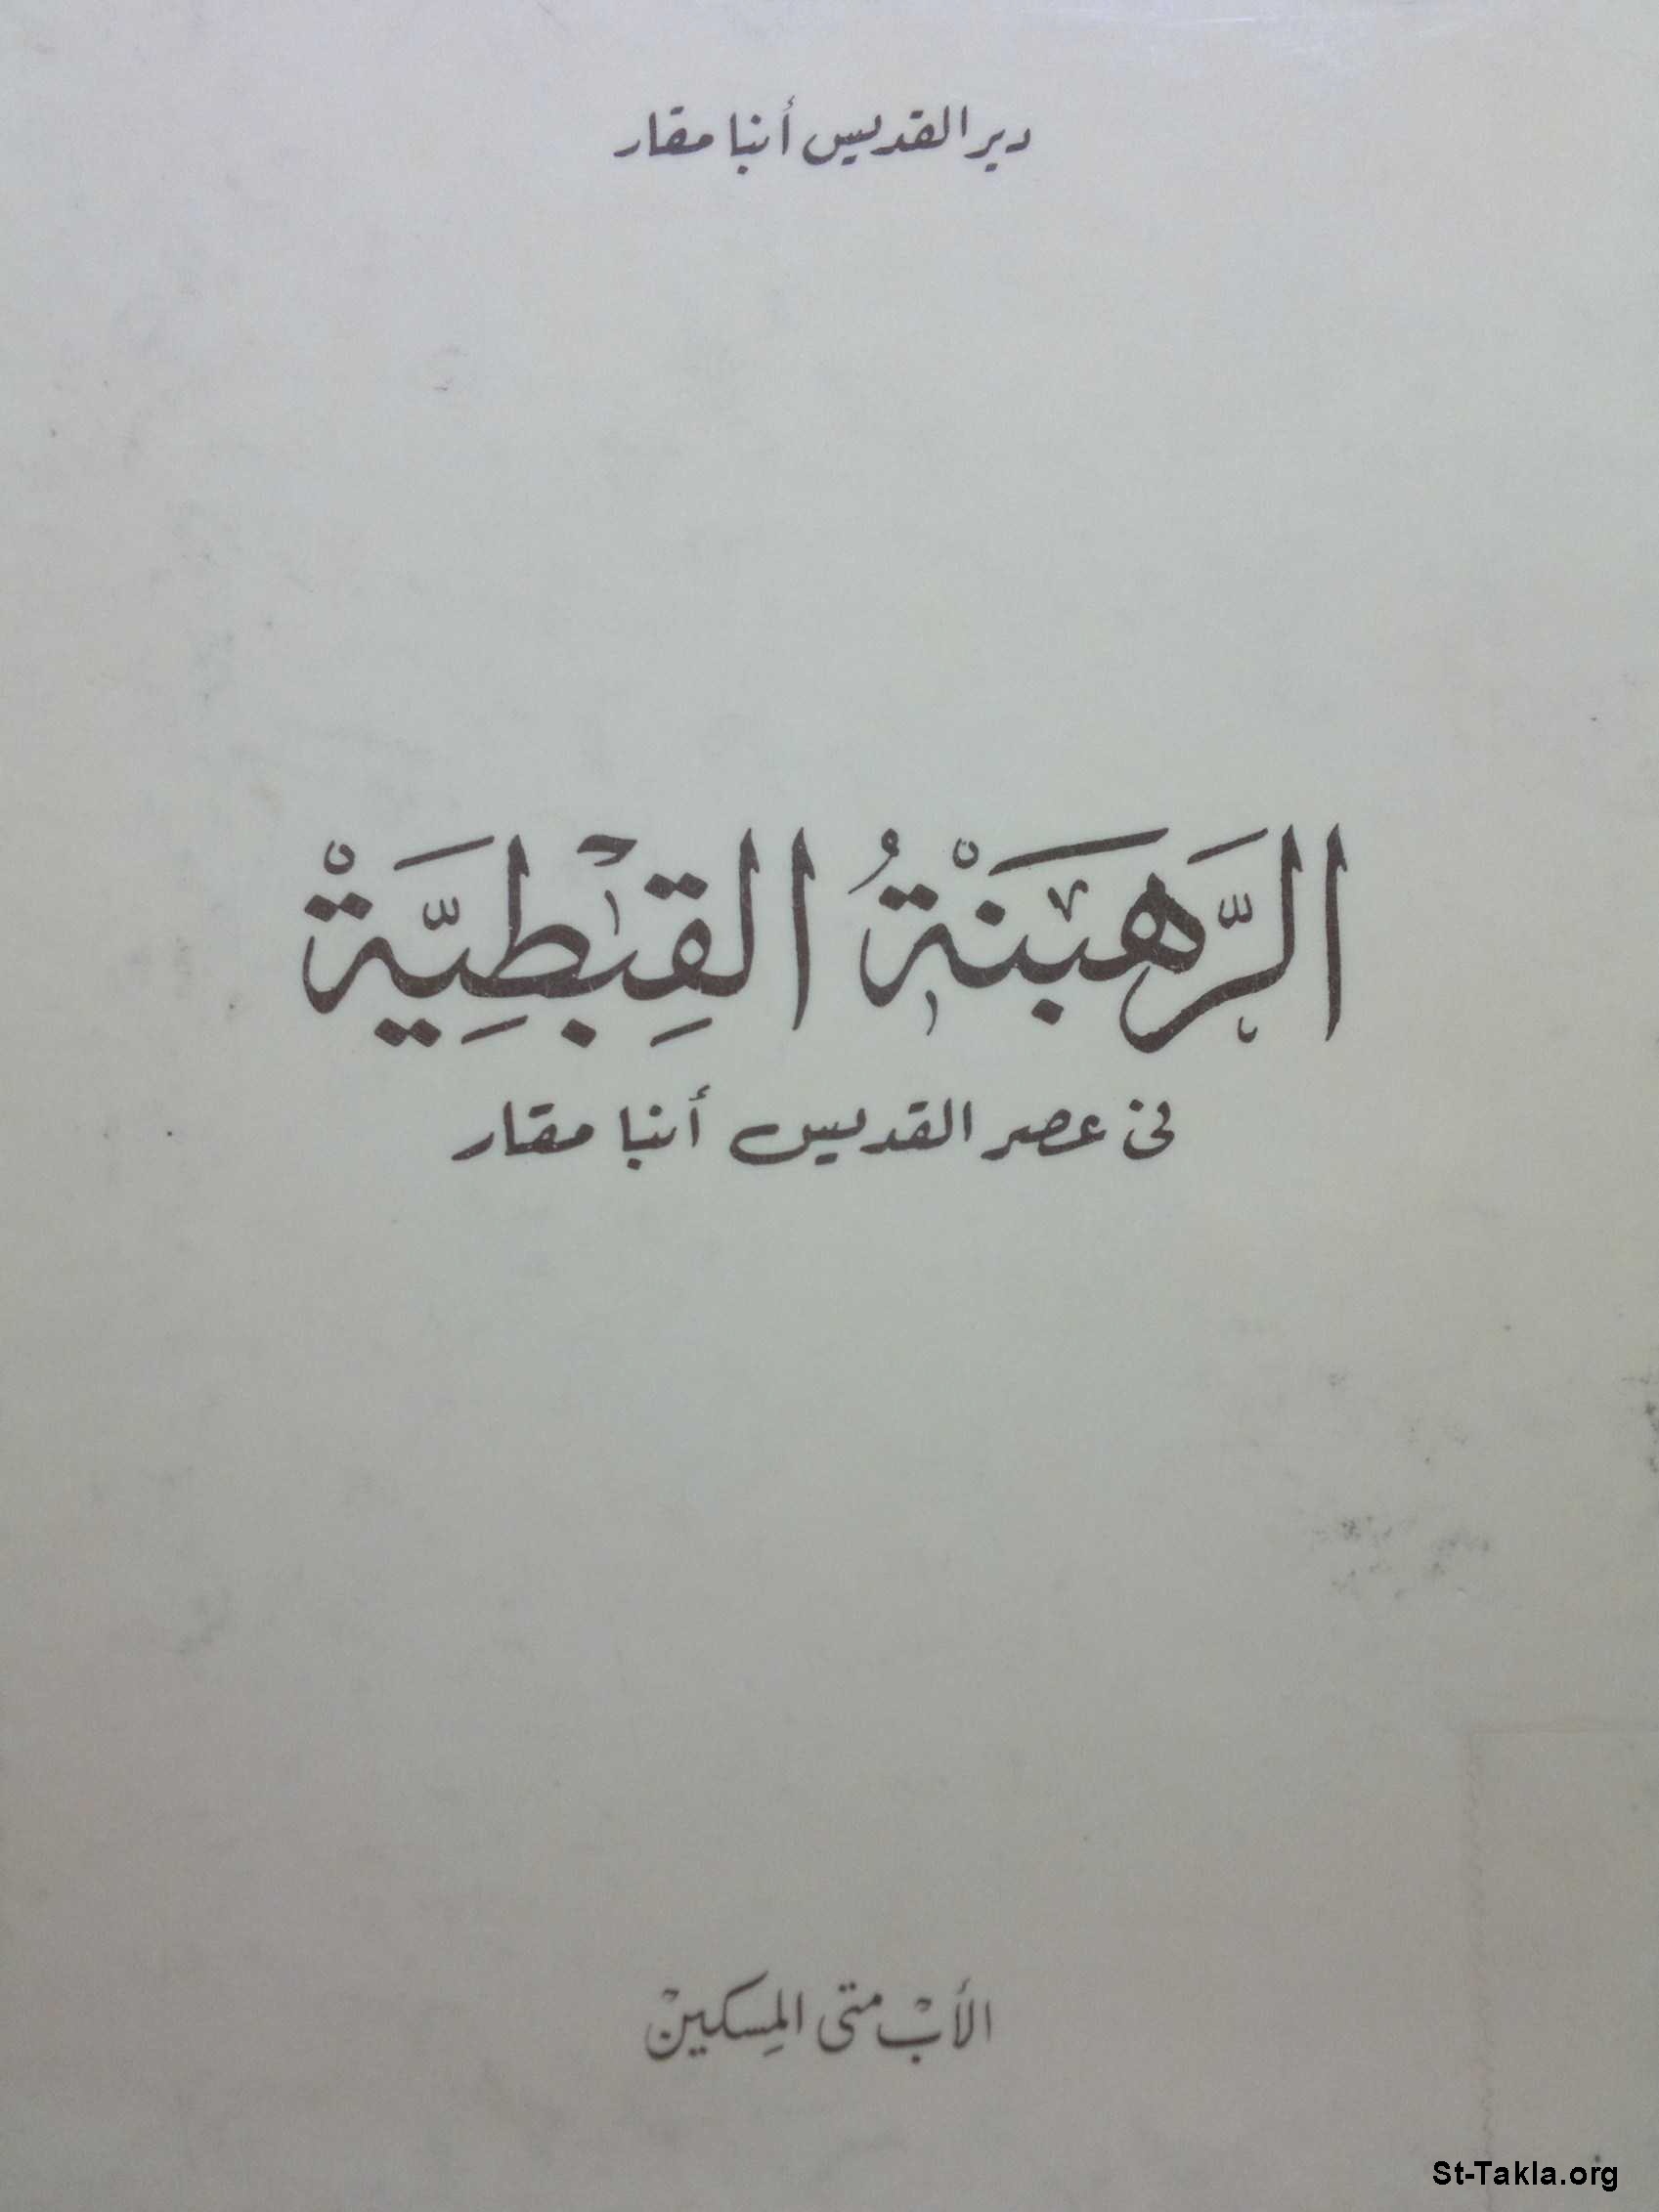 دير القديس أنبا مقار
الرَّهبَنَةُ القِبْطِيَّةْ
فى عصر القديس أنبا مقار
الأبْ متى المِسكينْ
St-Takla.org